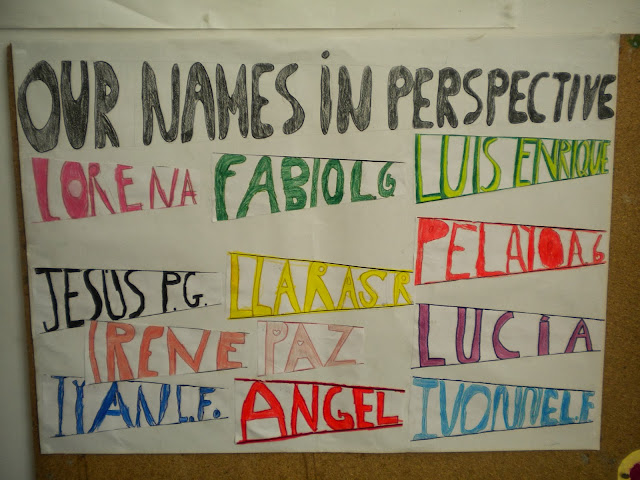 OUR NAMES iN PERSPECTIVE
LORENA FABIO LG LUIS ENRIQUE
PELAYO A G
JESÚS P.G. LLARA S.R
LUCíA
IRENE PAZ
IYAN L.F. ANGEL IVONNE L.F